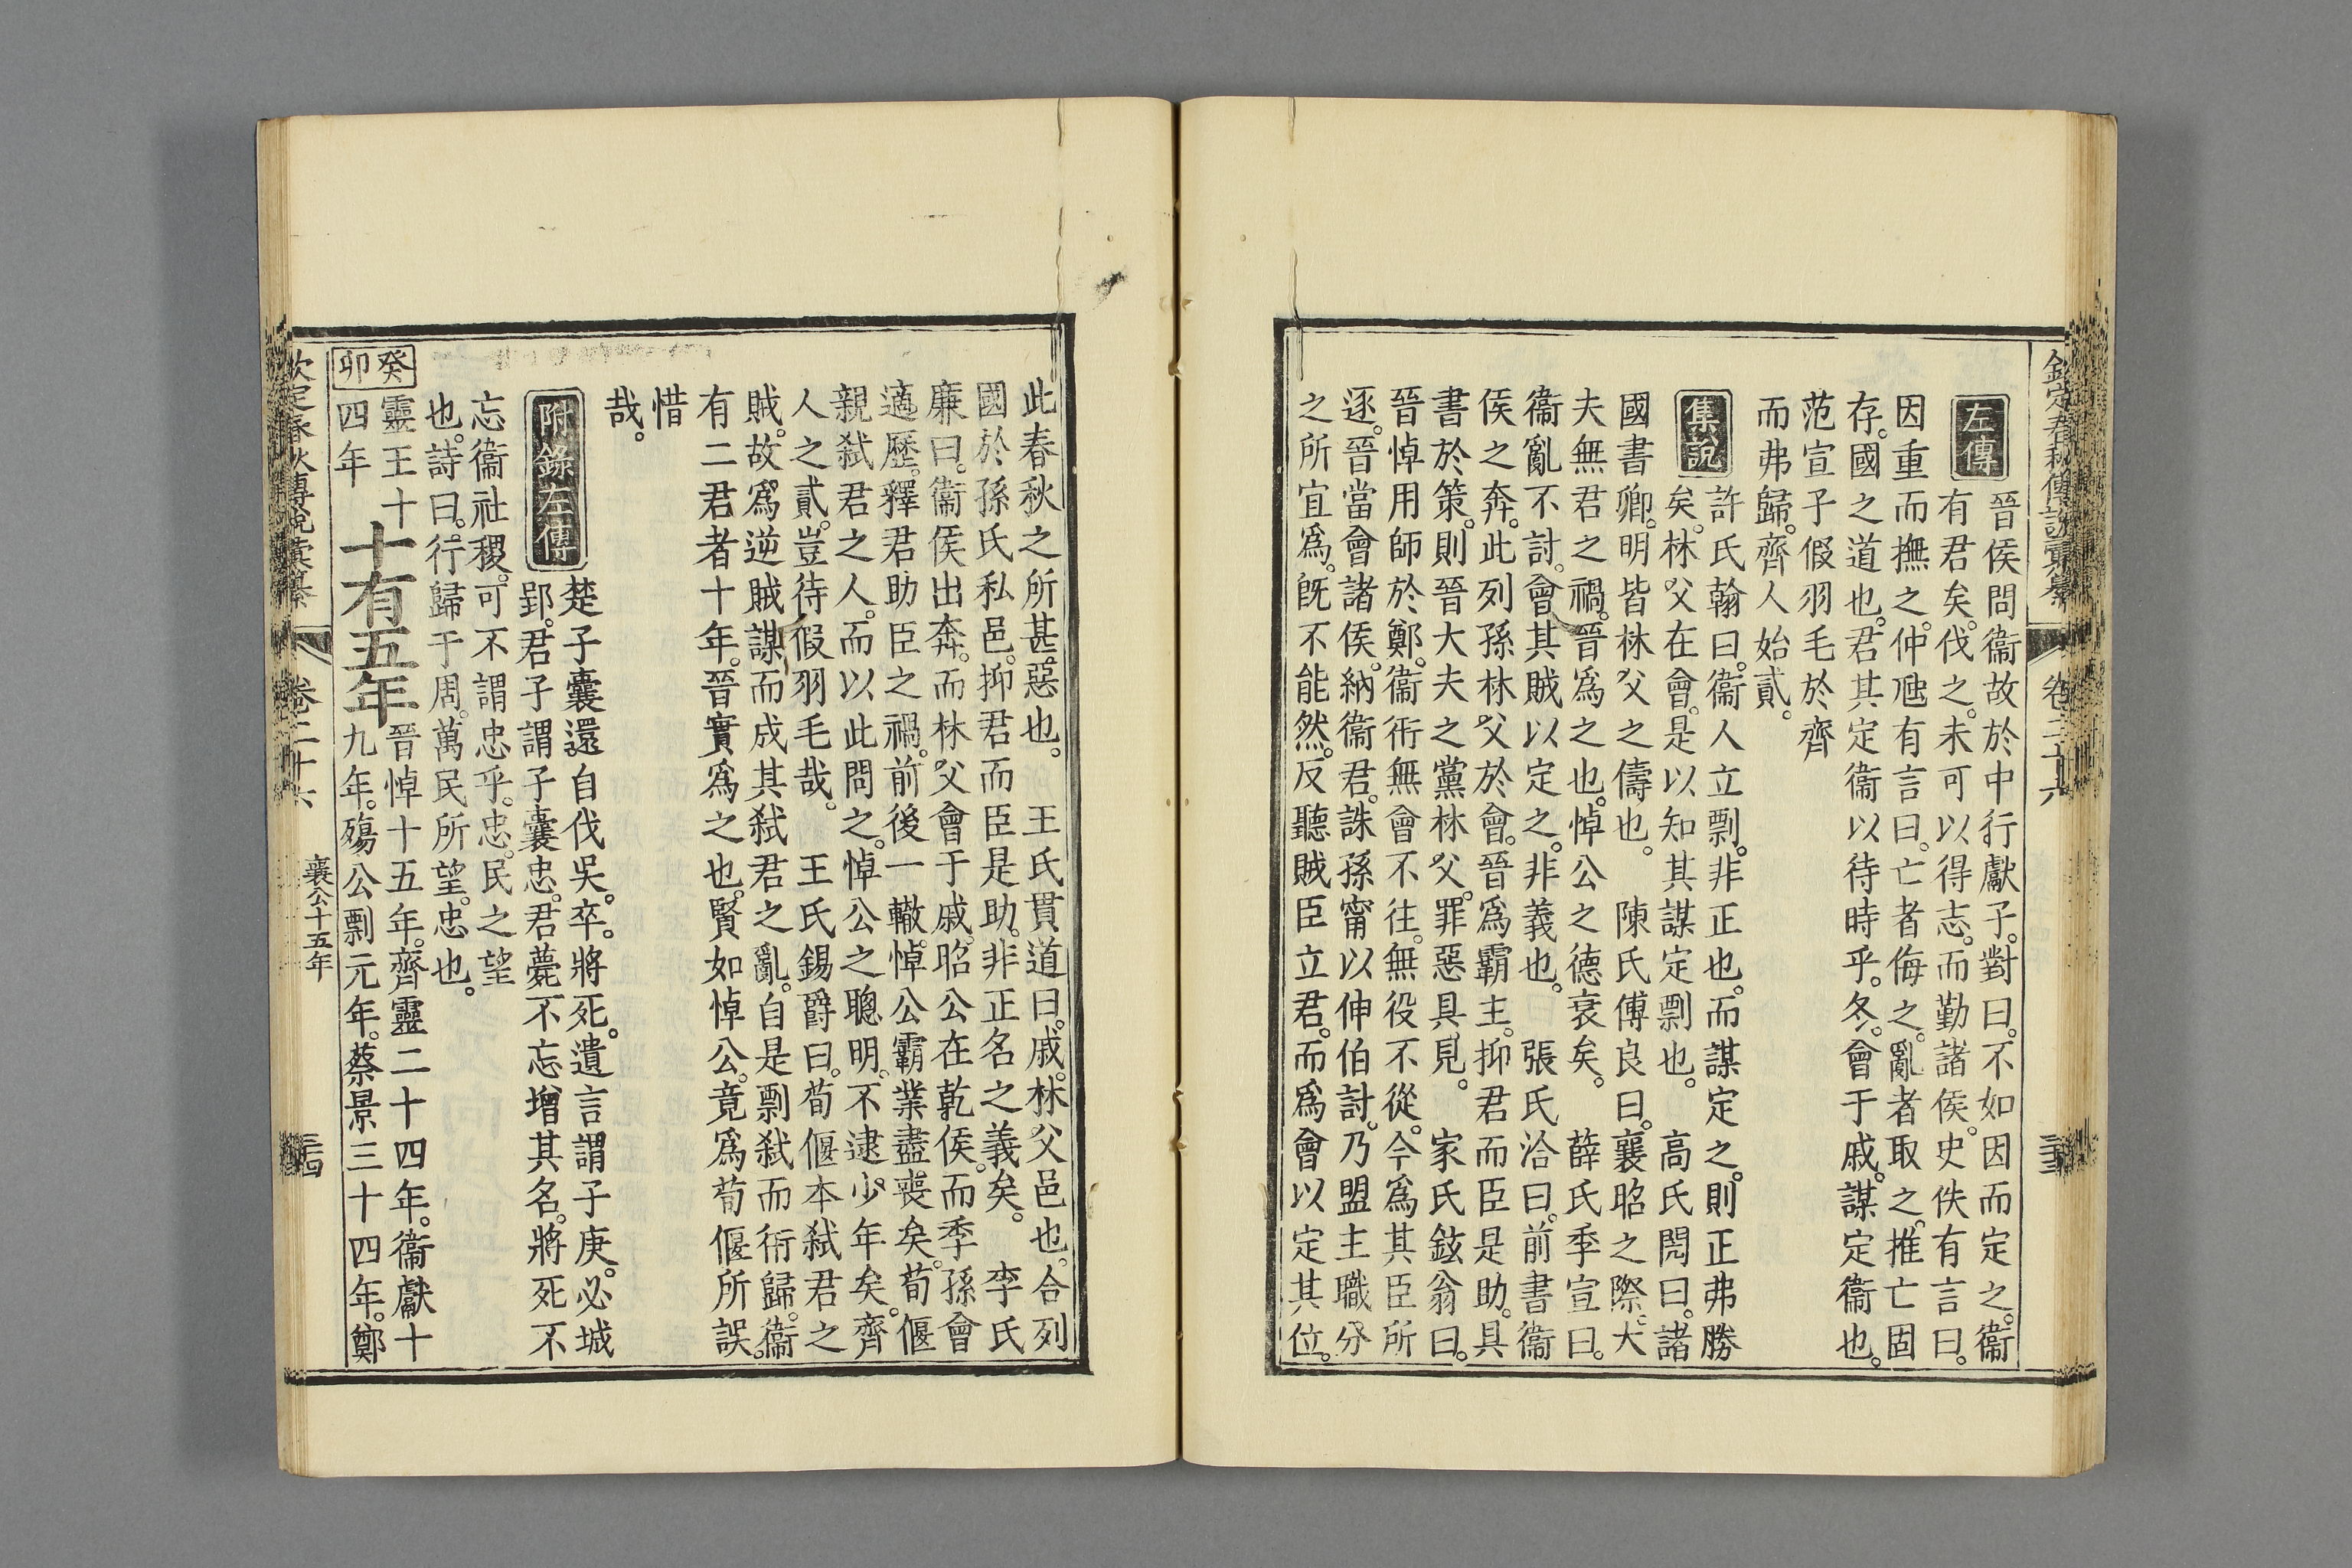 欽定春秋傳說彙纂 卷二十六 三十三
左傳
晉侯問衞故於中行獻子。對曰。不如因而定之。衞
有君矣。伐之。未可以得志。而勤諸侯。史佚有言曰。
因重而撫之。仲虺有言曰。亡者侮之。亂者取之。推亡固
存。國之道也。君其定衞以待時乎。冬。會于戚。謀定衞也。
范宣子假羽毛於齊
而弗歸。齊人始貳。
集說
許氏翰曰。衞人立剽。非正也。而謀定之。則正弗勝
矣。林父在會。是以知其謀定剽也。 高氏閌曰。諸
國書卿。明皆林父之儔也。 陳氏傅良曰。襄昭之際。大
夫無君之禍。晉爲之也。悼公之德衰矣。 薛氏季宣曰。
衞亂不討。會其賊以定之。非義也。 張氏洽曰。前書衞
侯之奔。此列孫林父於會。晉爲霸主。抑君而臣是助。具
書於策。則晉大夫之黨林父。罪惡具見。 家氏鉉翁曰。
晉悼用師於鄭。衞衎無會不往。無役不從。今爲其臣所
逐。晉當會諸侯。納衞君。誅孫甯以伸伯討。乃盟主職分
之所宜爲。旣不能然。反聽賊臣立君。而爲會以定其位。
此春秋之所甚惡也。 王氏貫道曰。戚。林父邑也。合列
國於孫氏私邑。抑君而臣是助。非正名之義矣。 李氏
廉曰。衞侯出奔。而林父會于戚。昭公在乾侯。而季孫會
適歷。釋君助臣之禍。前後一轍。悼公霸業盡喪矣。荀偃
親弑君之人。而以此問之。悼公之聰明。不逮少年矣。齊
人之貳。豈待假羽毛哉。 王氏錫爵曰。荀偃本弑君之
賊。故爲逆賊謀而成其弑君之亂。自是剽弑而衎歸。衞
有二君者十年。晉實爲之也。賢如悼公。竟爲荀偃所誤。
惜
哉。
附錄左傳
楚子囊還自伐吳。卒。將死。遺言謂子庚。必城
郢。君子謂子囊忠。君薨不忘增其名。將死不
忘衞社稷。可不謂忠乎。忠。民之望
也。詩曰。行歸于周。萬民所望。忠也。
癸卯
靈王十四年
十有五年
晉悼十五年。齊靈二十四年。衞獻十
九年。殤公剽元年。蔡景三十四年。鄭
欽定春秋傳說彙纂 卷二十六 襄公十五年 三十四